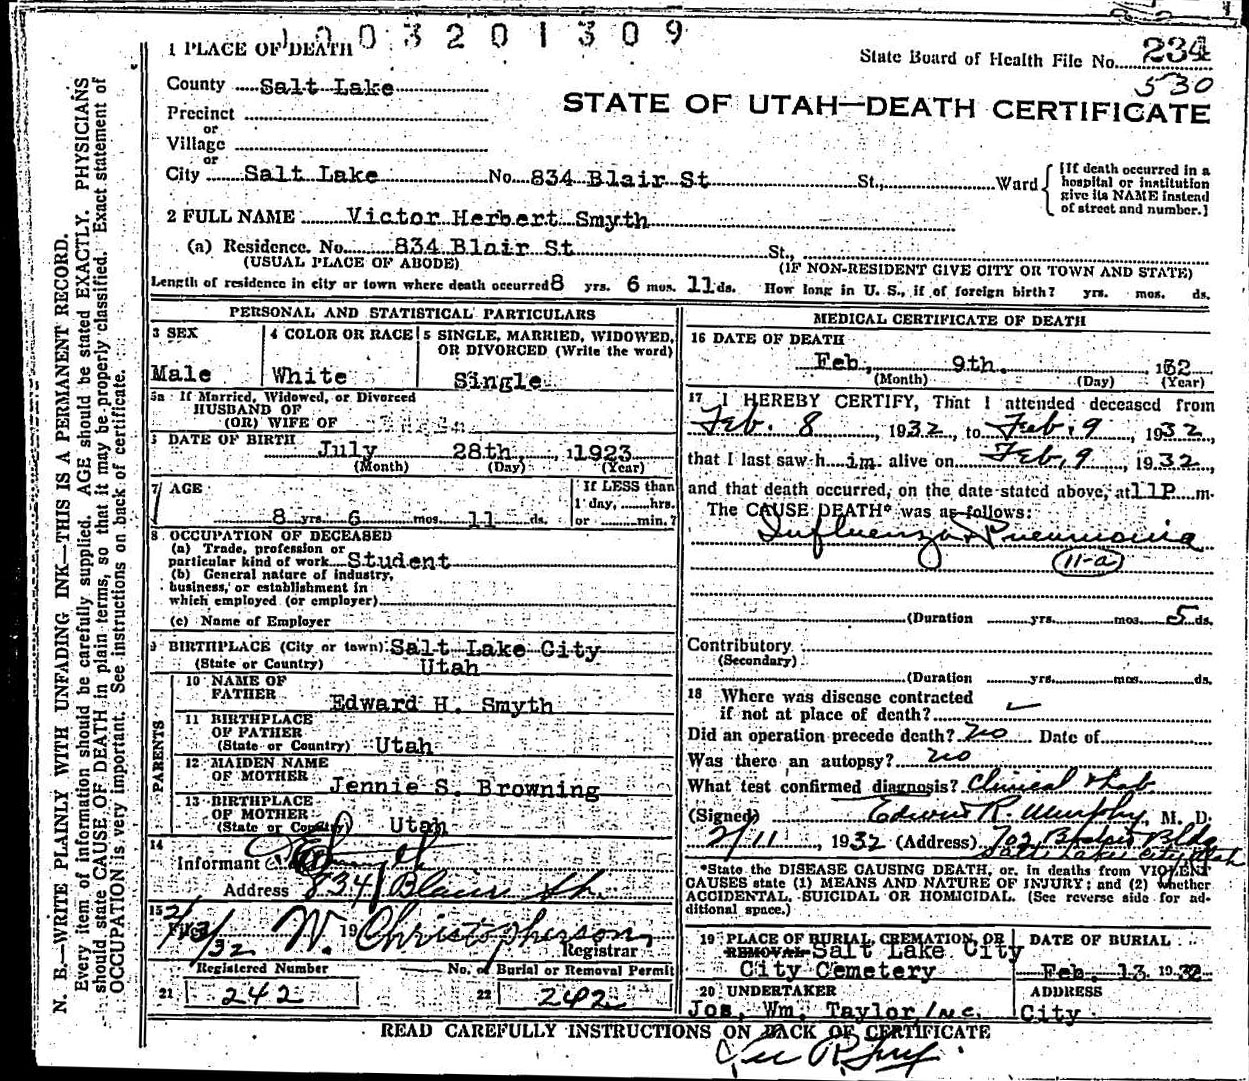 1003201309
1 PLACE OF DEATH
State Board of Health File No. 234
530
County Salt Lake
STATE OF UTAH—DEATH CERTIFICATE
Precinct
or
Village
or
City Salt Lake No. 834 Blair St St., Ward
[If death occurred in a hospital or institution give its NAME instead of street and number.]
2 FULL NAME Victor Herbert Smyth
(a) Residence. No. 834 Blair St St.,
(USUAL PLACE OF ABODE) (IF NON-RESIDENT GIVE CITY OR TOWN AND STATE)
Length of residence in city or town where death occurred 8 yrs. 6 mos. 11 ds. How long in U. S., if of foreign birth? yrs. mos. ds.
PERSONAL AND STATISTICAL PARTICULARS
3 SEX
Male
4 COLOR OR RACE
White
5 SINGLE, MARRIED, WIDOWED,
OR DIVORCED (Write the word)
Single
5a If Married, Widowed, or Divorced
HUSBAND OF
(OR) WIFE OF
6 DATE OF BIRTH
July 28th, 1923
(Month) (Day) (Year)
7 AGE
8 yrs. 6 mos. 11 ds.
If LESS than
1 day, hrs.
or min.?
8 OCCUPATION OF DECEASED
(a) Trade, profession or
particular kind of work Student
(b) General nature of industry,
business, or establishment in
which employed (or employer)
(c) Name of Employer
9 BIRTHPLACE (City or town) Salt Lake City
(State or Country) Utah
PARENTS
10 NAME OF
FATHER Edward H. Smyth
11 BIRTHPLACE
OF FATHER
(State or Country) Utah
12 MAIDEN NAME
OF MOTHER Jennie S. Browning
13 BIRTHPLACE
OF MOTHER
(State or Country) Utah
14
Informant
Address 834 Blair St.
15
Filed 2/13/32 19 W. Christopherson
Registrar
Registered Number No. of Burial or Removal Permit
21 242 22 242
MEDICAL CERTIFICATE OF DEATH
16 DATE OF DEATH
Feb. 9th. 1932
(Month) (Day) (Year)
17 I HEREBY CERTIFY, That I attended deceased from
Feb. 8, 1932, to Feb, 9, 1932,
that I last saw h im alive on Feb, 9, 1932,
and that death occurred, on the date stated above, at 11P m.
The CAUSE DEATH* was as follows:
Influenza & Pneumonia
11-a
(Duration yrs. mos. 5 ds.
Contributory
(Secondary)
(Duration yrs. mos. ds.
18 Where was disease contracted
if not at place of death?
Did an operation precede death? No Date of
Was there an autopsy? no
What test confirmed diagnosis? Clinical & Lab
(Signed) Edwin R. Murphy, M. D.
2/11, 1932 (Address) 702 Bldg
Salt Lake City, Utah
*State the DISEASE CAUSING DEATH, or, in deaths from VIOLENT
CAUSES state (1) MEANS AND NATURE OF INJURY; and (2) whether
ACCIDENTAL, SUICIDAL OR HOMICIDAL. (See reverse side for ad-
ditional space.)
19 PLACE OF BURIAL, CREMATION, OR
REMOVAL Salt Lake City
City Cemetery
DATE OF BURIAL
Feb. 13. 1932
20 UNDERTAKER
Jos. Wm. Taylor, Inc.
ADDRESS
City
READ CAREFULLY INSTRUCTIONS ON BACK OF CERTIFICATE
N. B.—WRITE PLAINLY WITH UNFADING INK—THIS IS A PERMANENT RECORD.
Every item of information should be carefully supplied. AGE should be stated EXACTLY. PHYSICIANS
should state CAUSE OF DEATH in plain terms, so that it may be properly classified. Exact statement of
OCCUPATION is very important. See instructions on back of certificate.